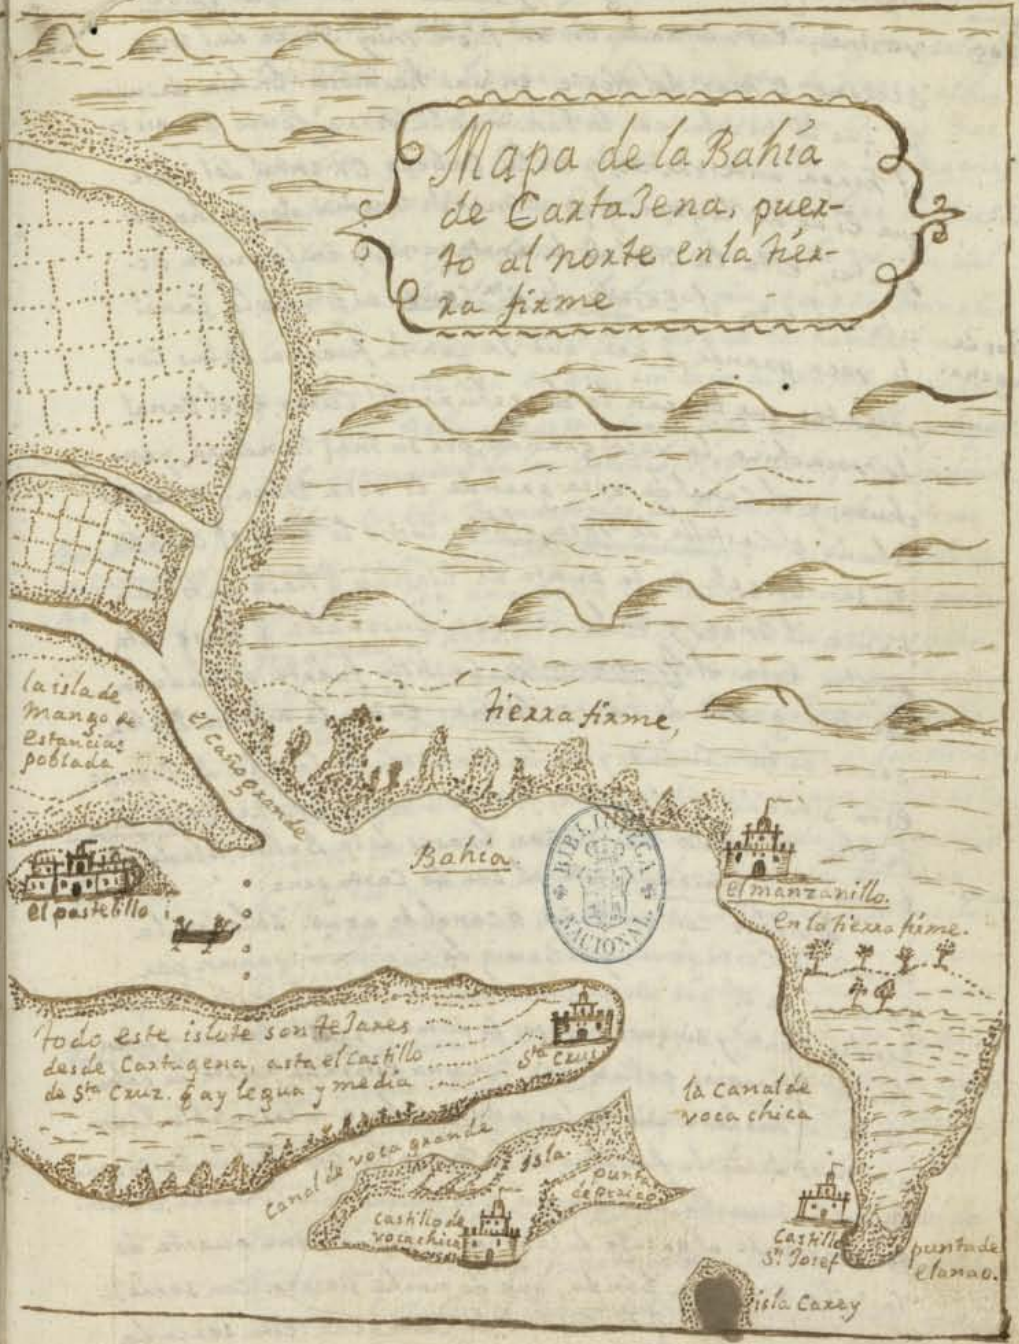 Mapa de la Bahía
de CartaJena, puer-
to al norte en la tier-
ra firme
la isla de
Mango de
estancias
poblada
el caño grande
tierra firme,
Bahía.
BIBLIOTECA
NACIONAL
el pastelillo
el manzanillo.
en la tierra firme.
todo este islote son teJares
desde Cartagena, asta el Castillo
de Sta. Cruz. q̃ ay legua y media
Sta. Cruz
la Canal de
voca chica
canal de voca grande
Isla.
punta
de perico
castillo de
vocachica
Castillo
Sn. Josef
punta de
isla Carey